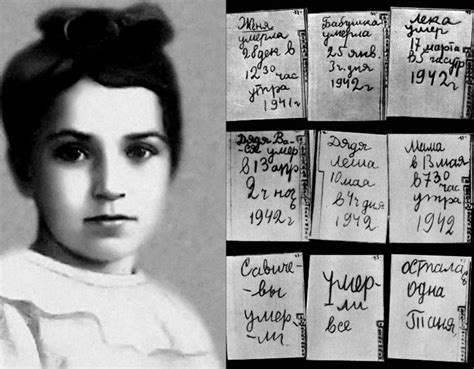 Женя
умерла
28 дек в
12 30 час
утра
1941 г
Бабушка
умерла
25 янв.
3 ч. дня
1942 г
Лека
умер
17 марта
в 5 час утр
1942 г
Дядя Ва-
ся умер
в 13 апр
2 ч ноч
1942 г
Дядя
Леша
10 мая
в 4 ч дня
1942
Мама
в 13 мая
в 7 30
час
утра
1942
Савиче-
вы
умер-
ли
умер-
ли
все
остала
одна
Таня